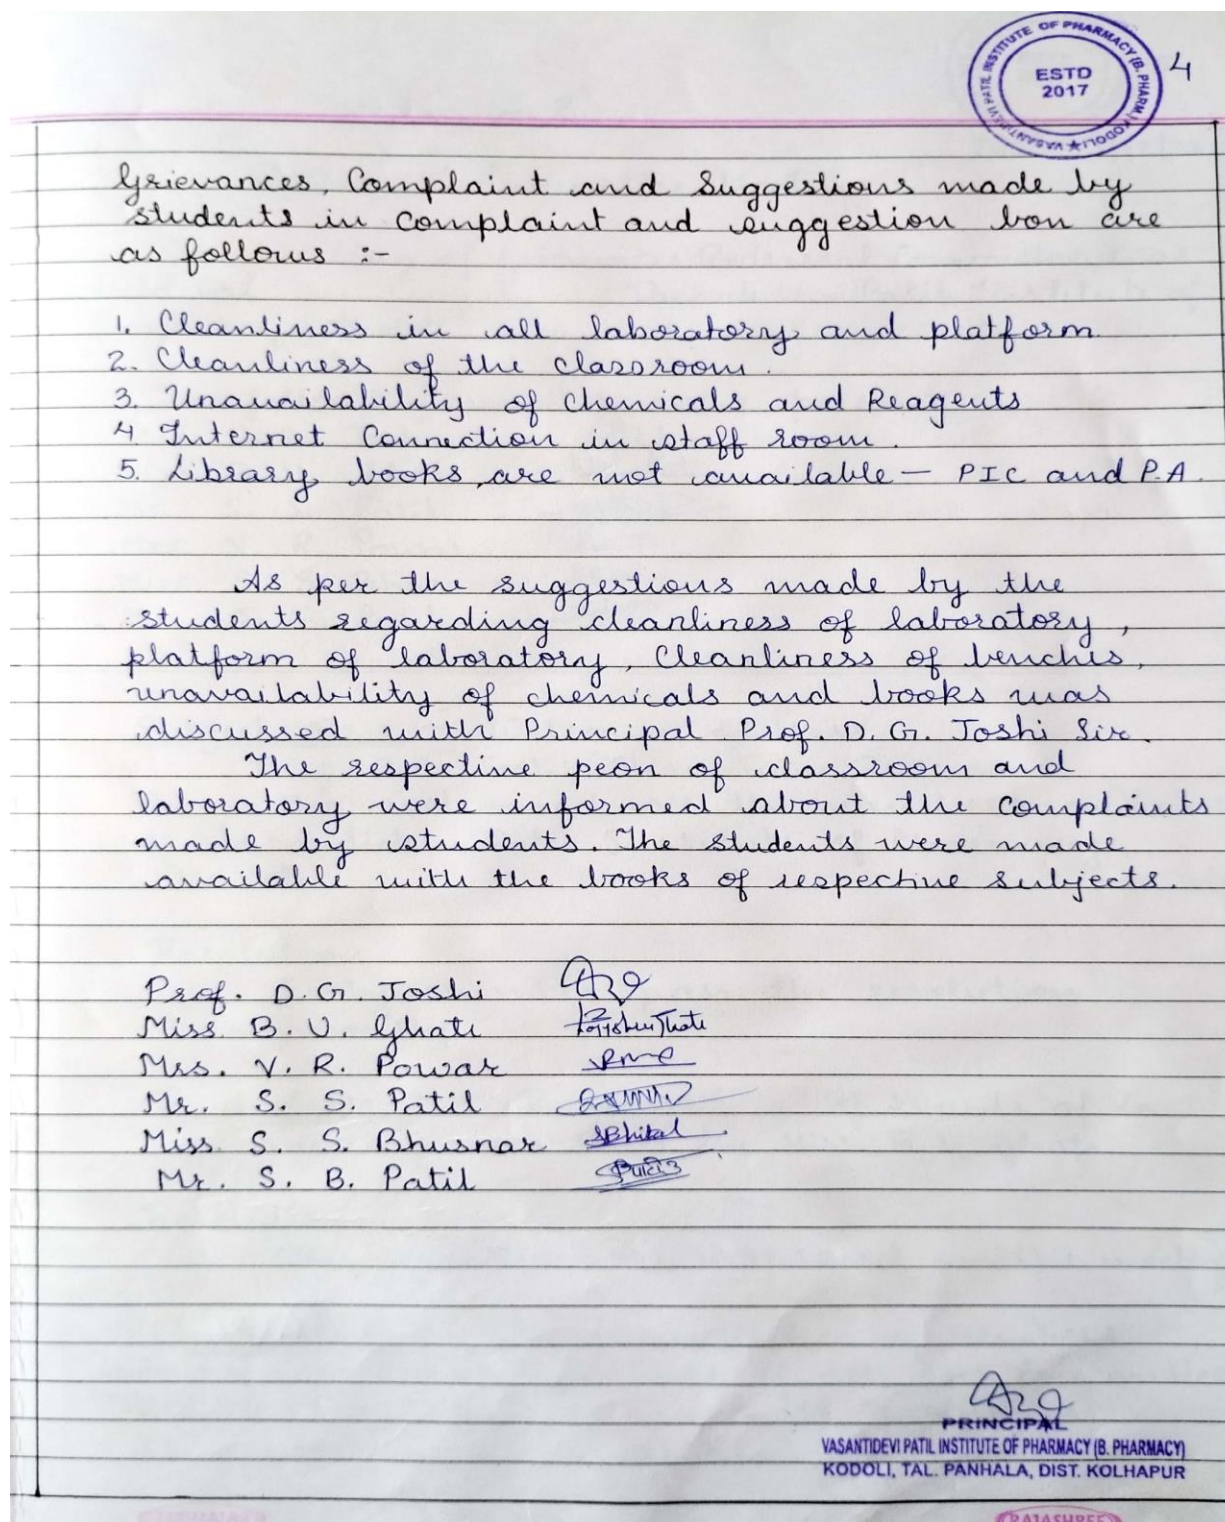 VASANTIDEVI PATIL INSTITUTE OF PHARMACY (B. PHARM) KODOLI
ESTD
2017
4
Grievances, Complaint and Suggestions made by
students in complaint and suggestion bon are
as follows :-
1. Cleanliness in all laboratory and platform.
2. Cleanliness of the classroom.
3. Unavailability of chemicals and Reagents
4 Internet Connection in staff room.
5. Library books are not available – PIC and P.A.
As per the suggestions made by the
students regarding cleanliness of laboratory,
platform of laboratory, Cleanliness of benches,
unavailability of chemicals and books was
discussed with Principal Prof. D. G. Joshi Sir.
The respective peon of classroom and
laboratory were informed about the complaints
made by students. The students were made
available with the books of respective subjects.
Prof. D. G. Joshi
Miss B. U. Ghate
Mrs. V. R. Powar
Mr. S. S. Patil
Miss S. S. Bhusnar
Mr. S. B. Patil
PRINCIPAL
VASANTIDEVI PATIL INSTITUTE OF PHARMACY (B. PHARMACY)
KODOLI, TAL. PANHALA, DIST. KOLHAPUR
RAJASHREE